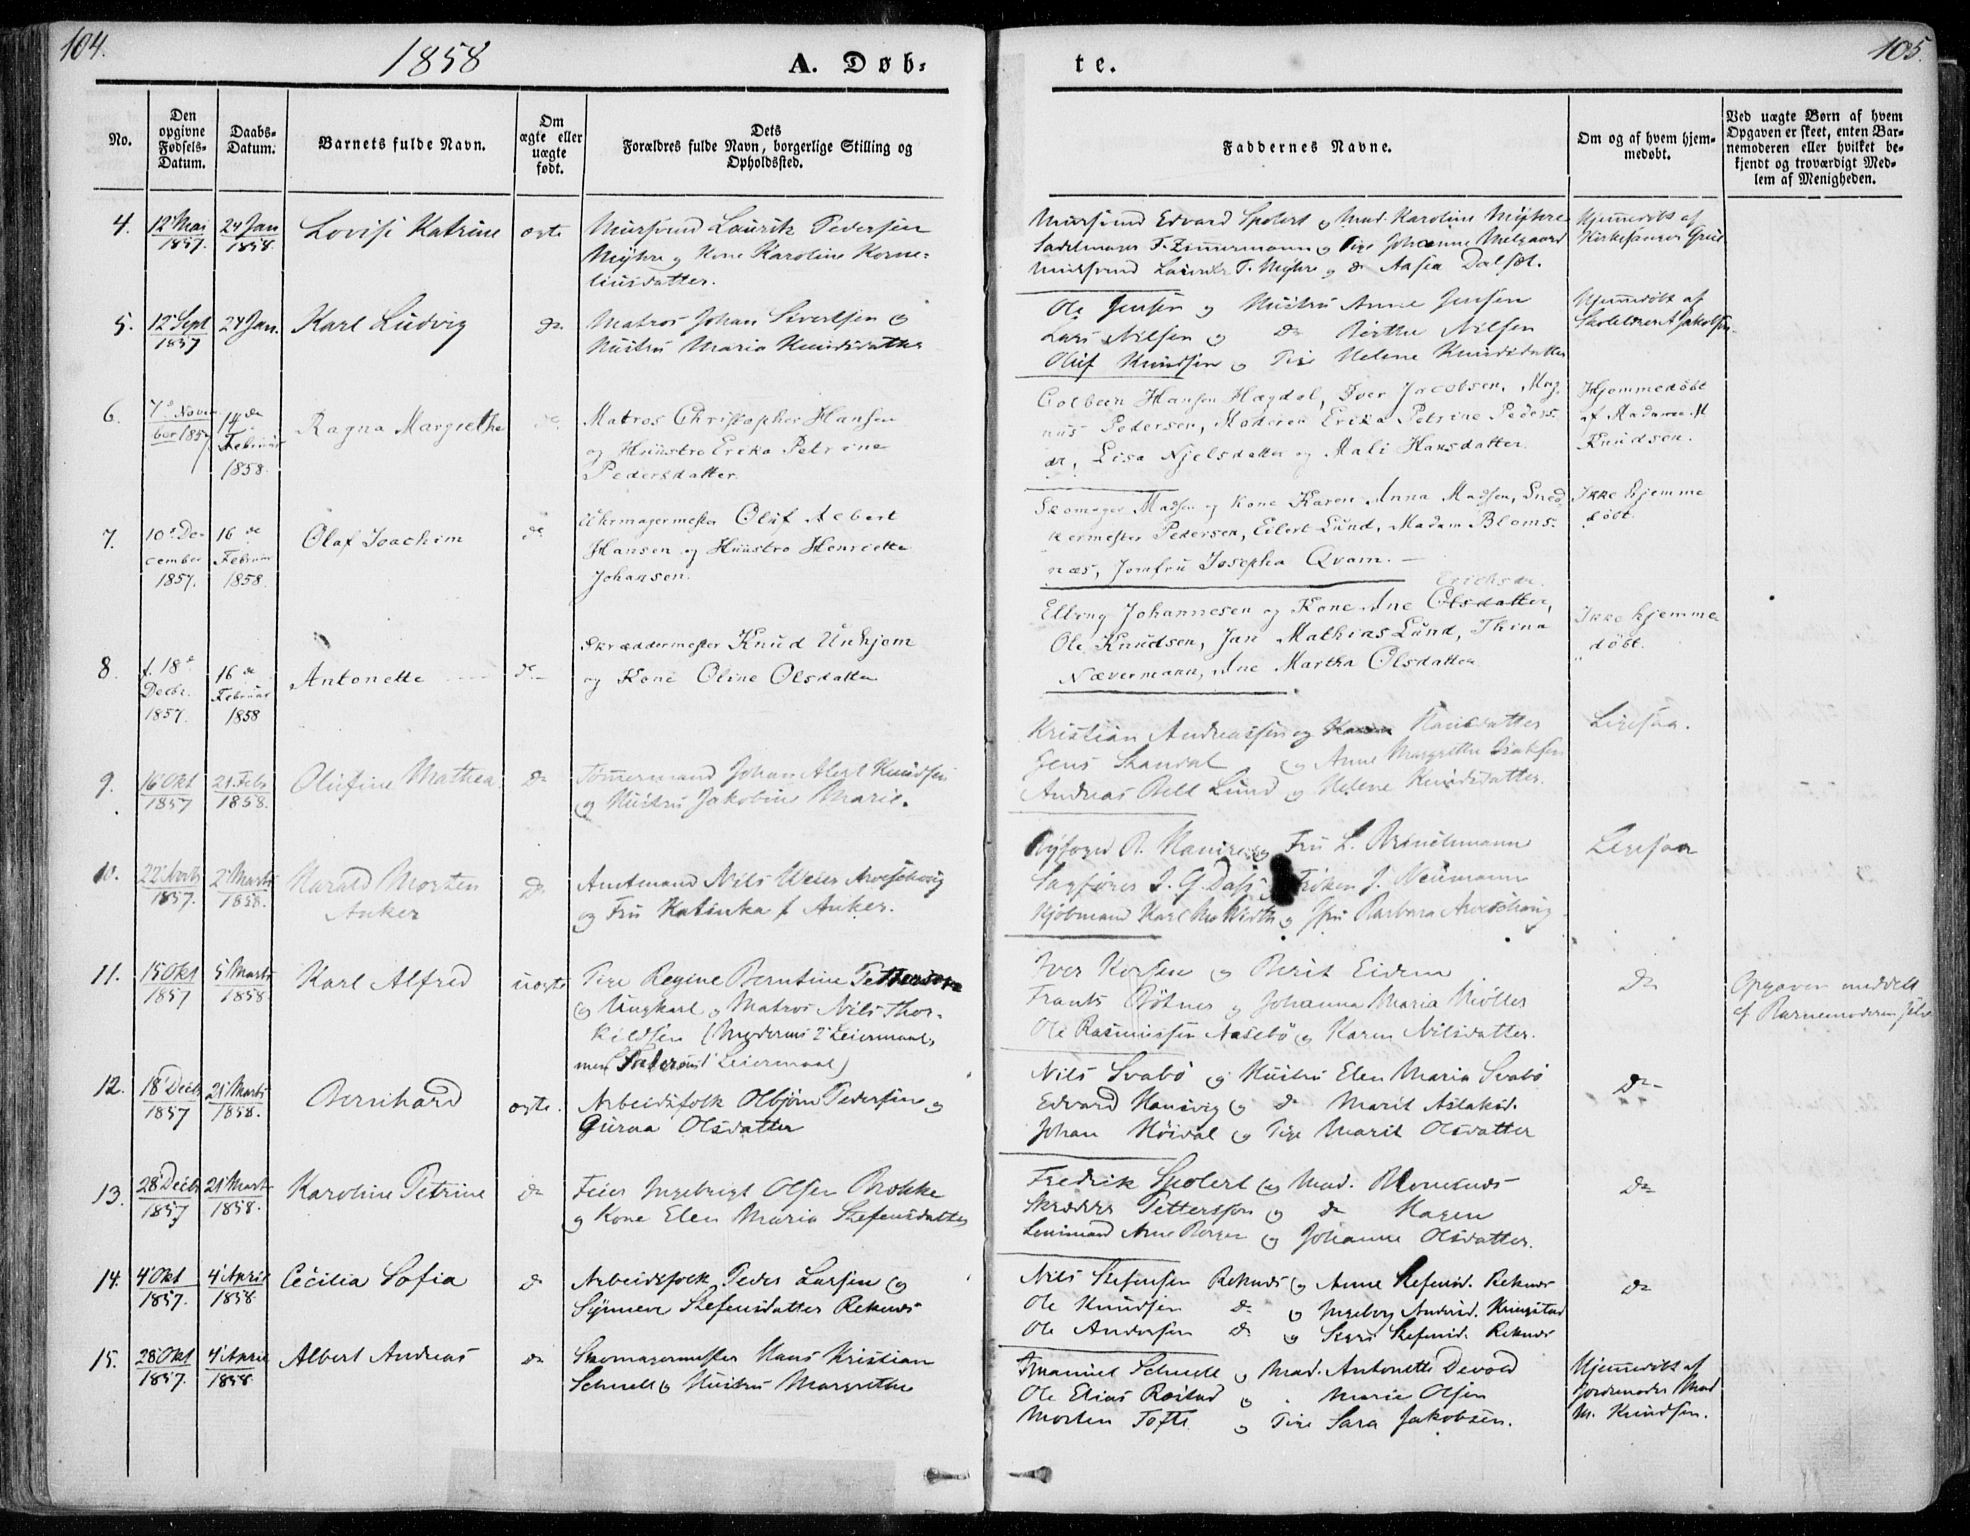 104.
1858
A. Døb-
te.
105.
No.
Den opgivne Fødsels-Datum.
Daabs-Datum.
Barnets fulde Navn.
Om ægte eller uægte født.
Dets
Forældres fulde Navn, borgerlige Stilling og
Opholdssted.
Faddernes Navne.
Om og af hvem hjem-
medøbt.
Ved uægte Børn af hvem
Opgaven er skeet, enten Bar-
nemoderen eller hvilket be-
kjendt og troværdigt Med-
lem af Menigheden.
4. 12 Mai 1857. 24 Jan 1858. Lovise Katrine ægte
Muursvend Laurik Pedersen
Myhre og Kone Karoline Korne-
liusdatter.
Muursvend Edvard Spolert og Mad. Karoline Myhre
Sadelmager F. Zimmermann og Pige Johanne Melgaard
Muursvend T. Myhre og do Aasea Dalset.
Hjemmedøbt af
Kirkesanger
5. 12 Sept 1857 24 Jan. Karl Ludvig do
Matros Johan Sivertsen og
Hustru Maria Knudsdatter
Ole Jensen og Hustru Anne Jensen
Lars Nilsen og do Berthe Nilsen
Oluf Knudsen og Pige Helene Knudsdatter
Hjemmedøbt af
Skolelærer A Jakobsen
6. 7de November 1857 14de Februar 1858. Ragna Margrethe do
Matros Christopher Hansen
og Huustro Erika Petrine
Pedersdatter.
Colbein Hansen Hagdal, Iver Jacobsen, Mag-
nus Pedersen, Moderen Erika Petrine Peders-
dr, Lisa Njelsdatter og Mali Hansdatter.
Hjemmedøbt
af Madame M
Knudsen.
7. 10de December 1857. 16de Februar 1858. Olaf Joachim do
Uhrmagermester Oluf Albert
Hansen og Huustro Henriette
Johansen.
Skomager Madsen og Kone Karen Anna Madsen, Sned-
kermester Pedersen, Eilert Lund, Madam Bloms-
næs, Jomfru Josepha Qvam. —
Ikke hjemme
døbt.
8. f. 18de Decbr. 1857. 16de Februar 1858 Antonette do
Skræddermester Knud Unhjem
og Kone Oline Olsdatter
Erichsdr.
Elling Johannesen og Kone Ane Olsdatter,
Ole Knudsen, Jan Mathias Lund, Thina
Nævermann, Ane Martha Olsdatter
Ikke hjemme
døbt.
9. 16 Okt 1857 21 Feb 1858. Olufine Mathea do
Tømmermand Johan Knudsen
og Hustru Jakobine Marie.
Kristian Andreassen og Hansdatter
Jens Standal og Anne Margrethe Isaksen
Andreas Lund og Helene Knudsdatter.
Ligesaa.
10. 22 1857. 2 Marts 1858. Harald Morten
Anker do
Amtmand Nils Weier Arveschoug
og Fru Katinka f Anker.
Byfoged og Fru L. Brinchmann
Sagfører J. G. Dass Frøken J. Neumann
Kjøbmand Karl og Jfru Barbara Arveschoug
Ligesaa
11. 15 Okt 1857 5 Marts 1858. Karl Alfred uægte
Pige Regine Berntine
og Ungkarl og Matros Nils Thor-
kildsen (Moderens 2 Leiermaal,
men Faderens 1 Leiermaal)
Iver Korsen og Berit Eidem
Frants Bøtner og Johanna Maria Møller
Ole Rasmussen Aasebø og Karen Nilsdatter.
do
Opgaven meddelt
af Barnemoderen selv
12. 18 Decb 1857 21 Marts 1858. Bernhard ægte.
Arbeidsfolk Olbjørn Pedersen og
Guroa Olsdatter
Nils Svabø og Hustru Elen Maria Svabø
Edvard Hansvig og do Marit Aslaksd.
Johan Høidal og Pige Marit Olsdatter
do
13. 28 Decb 1857 21 Marts 1858. Karoline Petrine do
Feier Ingebrigt Olsen Brokke
og Kone Elen Maria Stefensdatter
Fredrik Spolert og Mad. Blomsnæs
Skrædder Pettersson og do Hagen
Arne og Johanne Olsdatter.
do
14. 4 Okt 1857. 4 April 1858 Cecilia Sofia do
Arbeidsfolk Peder Larsen og
Synneve Stefensdatter Reknes
Nils Stefensen Reknes og Anne Stefensd. Reknes
Ole Knudsen do og Ingeborg Andersd. Kringstad
Ole Andersen do og Stefensd. Reknes
do
15. 28 Okt 1857. 4 April 1858 Albert Andreas do
Skomagermester Hans Kristian
Schnell og Hustru Margrethe
Emanuel Schnell og Mad. Antonette Devold
Ole Elias Røstad og Marie Olsen
Morten Tofte og Pige Sara Jakobsen.
Hjemmedøbt af
Jordemoder Mad
M. Knudsen.